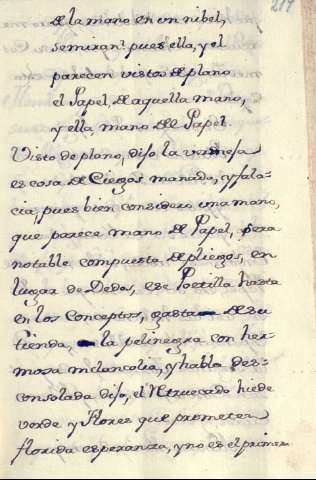 217
de la mano en un nibel,
se miran pues ella, y el
parecen vistos de plano
el Papel, de aquella mano,
y ella, mano del Papel.
Visto de plano, dijo la
es cosa de Ciegos manada, y fala-
cia, pues bien considero una mano,
que parece mano de Papel, sera
notable compuesta de pliegos, en
lugar de Dedos, ese Poetilla hasta
en los Conceptos, gasta de su
tienda, la pelinegra con her-
mosa melancolia, y habla des-
consolada dijo, el Trucado hiede
verde y Flores que prometen
florida esperanza, y no es el primer